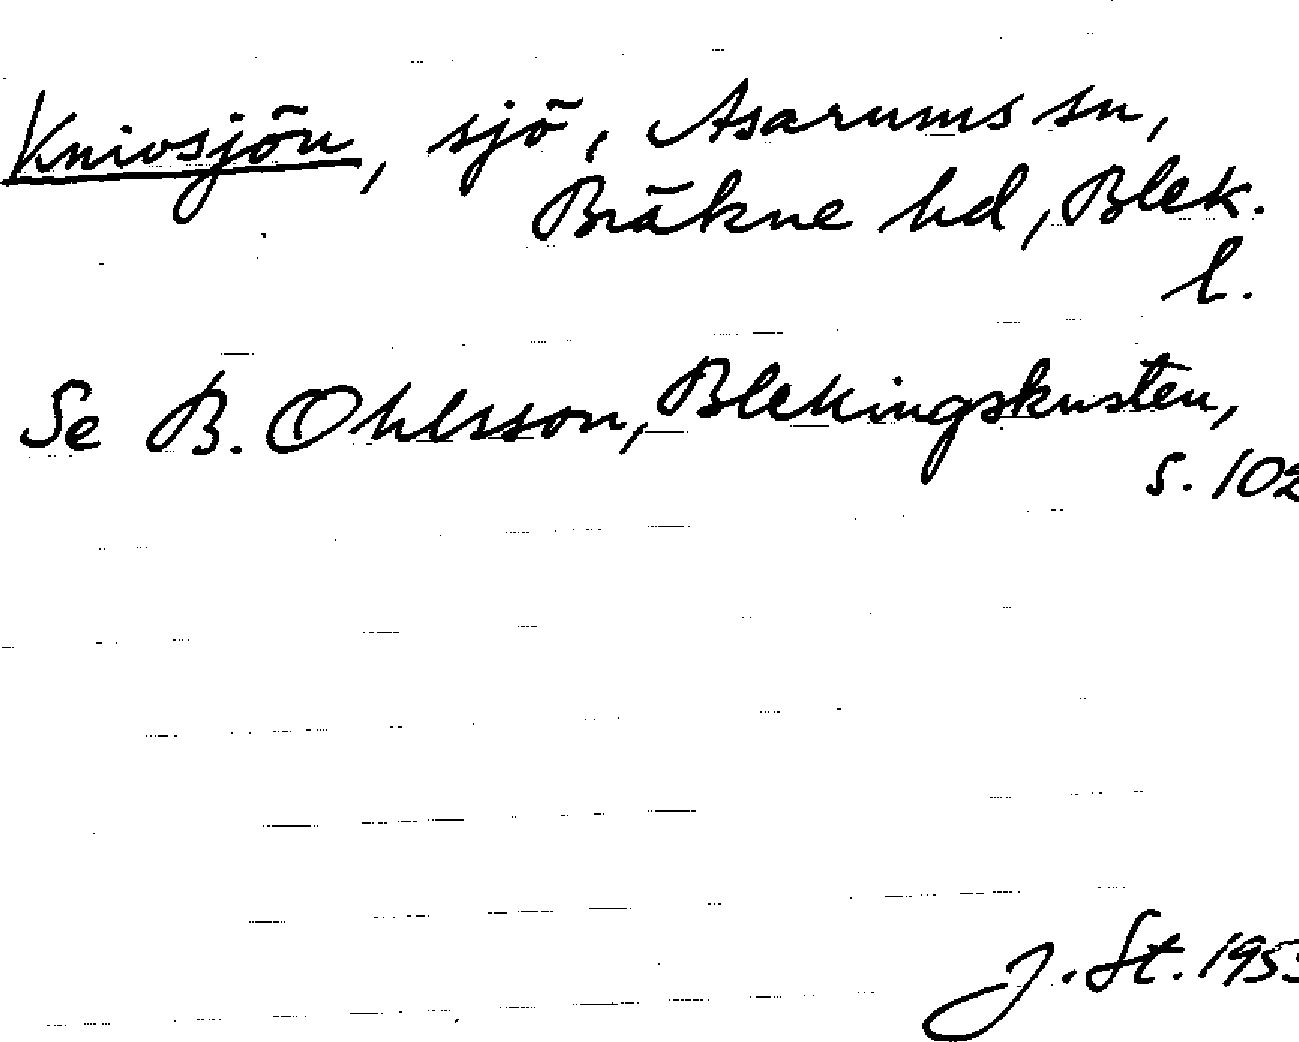 Knivsjön, sjö, Asarums sn,
Bräkne hd, Blek.
l.
Se B. Ohlsson, Blekingskusten,
s. 102
J. St. 1953